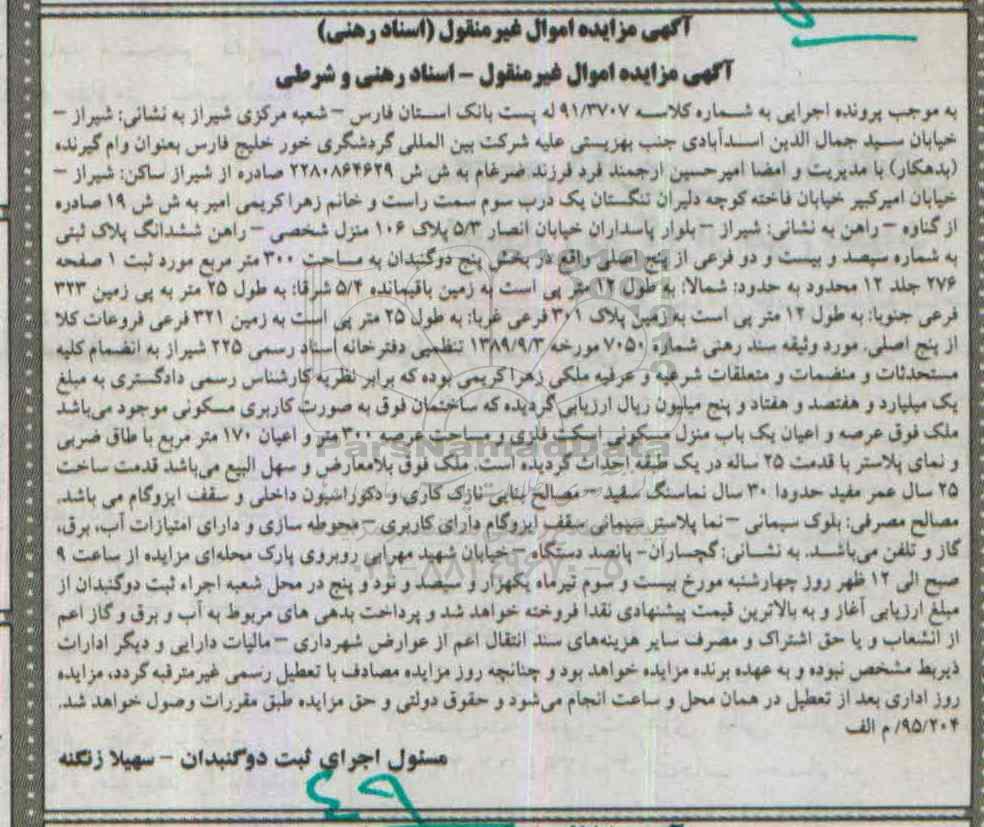 آگهی مزایده اموال غیرمنقول (اسناد رهنی)
آگهی مزایده اموال غیرمنقول – اسناد رهنی و شرطی
به موجب پرونده اجرایی به شماره کلاسه ۹۱/۳۷۰۷ له پست بانک استان فارس – شعبه مرکزی شیراز به نشانی: شیراز –
خیابان سید جمال الدین اسدآبادی جنب بهزیستی علیه شرکت بین المللی گردشگری خور خلیج فارس بعنوان وام گیرنده
(بدهکار) با مدیریت و امضا امیرحسین ارجمند فرد فرزند ضرغام به ش ش ۲۲۸۰۸۶۴۶۲۹ صادره از شیراز ساکن: شیراز –
خیابان امیرکبیر خیابان فاخته کوچه دلیران تنگستان یک درب سوم سمت راست و خانم زهرا کریمی امیر به ش ش ۱۹ صادره
از گناوه – راهن به نشانی: شیراز – بلوار پاسداران خیابان انصار ۵/۳ پلاک ۱۰۶ منزل شخصی – راهن ششدانگ پلاک ثبتی
به شماره سیصد و بیست و دو فرعی از پنج اصلی واقع در بخش پنج دوگنبدان به مساحت ۳۰۰ متر مربع مورد ثبت ۱ صفحه
۲۷۶ جلد ۱۲ محدود به حدود: شمالا: به طول ۱۲ متر پی است به زمین باقیمانده ۵/۴ شرقا: به طول ۲۵ متر به پی زمین ۳۲۳
فرعی جنوبا: به طول ۱۲ متر پی است به زمین پلاک ۳۰۱ فرعی غربا: به طول ۲۵ متر پی است به زمین ۳۲۱ فرعی فروعات کلا
از پنج اصلی. مورد وثیقه سند رهنی شماره ۷۰۵۰ مورخه ۱۳۸۹/۹/۳ تنظیمی دفترخانه اسناد رسمی ۲۲۵ شیراز به انضمام کلیه
مستحدثات و منضمات و متعلقات شرعیه و عرفیه ملکی زهرا کریمی بوده که برابر نظریه کارشناس رسمی دادگستری به مبلغ
یک میلیارد و هفتصد و هفتاد و پنج میلیون ریال ارزیابی گردیده که ساختمان فوق به صورت کاربری مسکونی موجود می‌باشد
ملک فوق عرصه و اعیان یک باب منزل مسکونی اسکلت فلزی و مساحت عرصه ۳۰۰ متر و اعیان ۱۷۰ متر مربع با طاق ضربی
و نمای پلاستر با قدمت ۲۵ ساله در یک طبقه احداث گردیده است. ملک فوق بلامعارض و سهل البیع می‌باشد قدمت ساخت
۲۵ سال عمر مفید حدودا ۳۰ سال نماسنگ سفید – مصالح بنایی نازک کاری و دکوراسیون داخلی و سقف ایزوگام می باشد.
مصالح مصرفی: بلوک سیمانی – نما پلاستر سیمانی سقف ایزوگام دارای کاربری – محوطه سازی و دارای امتیازات آب، برق،
گاز و تلفن می‌باشد. به نشانی: گچساران- پانصد دستگاه – خیابان شهید مهرابی روبروی پارک محله‌ای مزایده از ساعت ۹
صبح الی ۱۲ ظهر روز چهارشنبه مورخ بیست و سوم تیرماه یکهزار و سیصد و نود و پنج در محل شعبه اجراء ثبت دوگنبدان از
مبلغ ارزیابی آغاز و به بالاترین قیمت پیشنهادی نقدا فروخته خواهد شد و پرداخت بدهی های مربوط به آب و برق و گاز اعم
از انشعاب و یا حق اشتراک و مصرف سایر هزینه‌های سند انتقال اعم از عوارض شهرداری – مالیات دارایی و دیگر ادارات
ذیربط مشخص نبوده و به عهده برنده مزایده خواهد بود و چنانچه روز مزایده مصادف با تعطیل رسمی غیرمترقبه گردد، مزایده
روز اداری بعد از تعطیل در همان محل و ساعت انجام می‌شود و حقوق دولتی و حق مزایده طبق مقررات وصول خواهد شد.
۹۵/۲۰۴/ م الف
مسئول اجرای ثبت دوگنبدان – سهیلا زنگنه
ParsNamadData